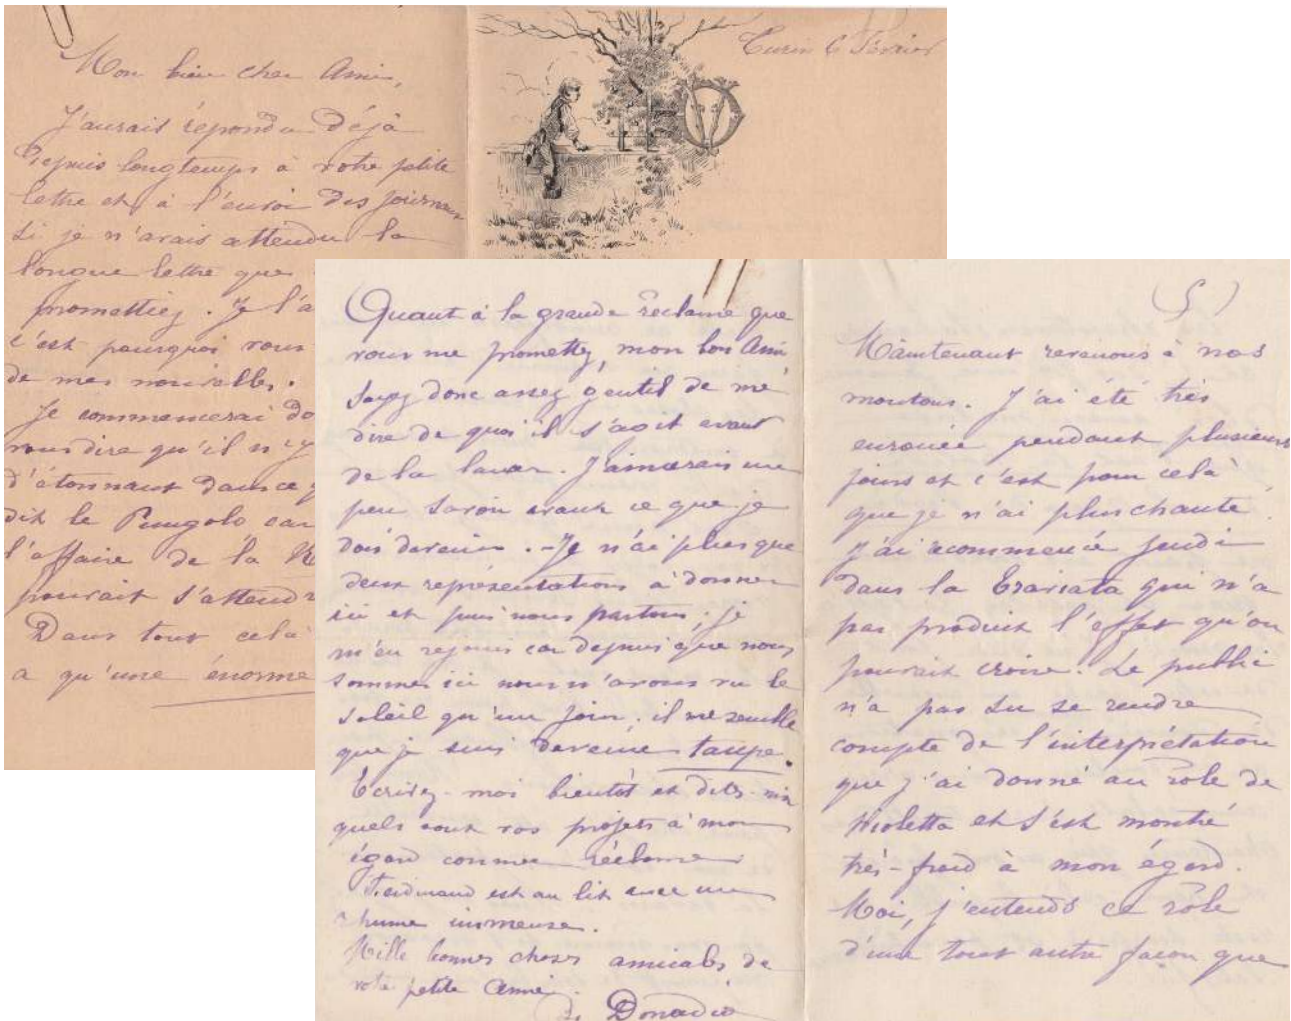 Turin 6 Février
Mon bien cher Ami,
J'aurais répondu Déjà
Depuis longtemps à votre petite
lettre et à l'envoi des journaux
Si je n'avais attendu la
longue lettre que
promettiez. Je l'a
c'est pourquoi vous
de mes nouvelles.
Je commencerai do
vous dire qu'il n'y
d'étonnant dans ce
dit le Pungolo car
l'affaire de la
pourrait s'attendr
Dans tout celà
a qu'une énorme
Quant à la grande réclame que
vous me promettez, mon bon Ami
soyez donc assez gentil de me
dire de quoi il s'agit avant
de la lancer. J'aimerais un
peu savoir avant ce que je
dois devenir. - Je n'ai plus que
deux représentations à donner
ici et puis nous partons; je
m'en rejouis car depuis que nous
sommes ici nous n'avons vu le
soleil qu'un jour. il me semble
que je suis devenue taupe.
Ecrivez-moi bientôt et dites-moi
quels sont vos projets à mon
égard comme réclame
Ferdinand est au lit avec un
rhume immense.
Mille bonnes choses amicales de
votre petite Amie
Donadio
(5)
Maintenant revenons à nos
moutons. J'ai été très
enrouée pendant plusieurs
jours et c'est pour celà
que je n'ai plus chanté.
J'ai recommencé jeudi
dans la Traviata qui n'a
pas produit l'effet qu'on
pouvait croire. Le public
n'a pas su se rendre
compte de l'interprétation
que j'ai donné au rôle de
Violetta et s'est montré
très-froid à mon égard.
Moi, j'entends ce rôle
d'une tout autre façon que